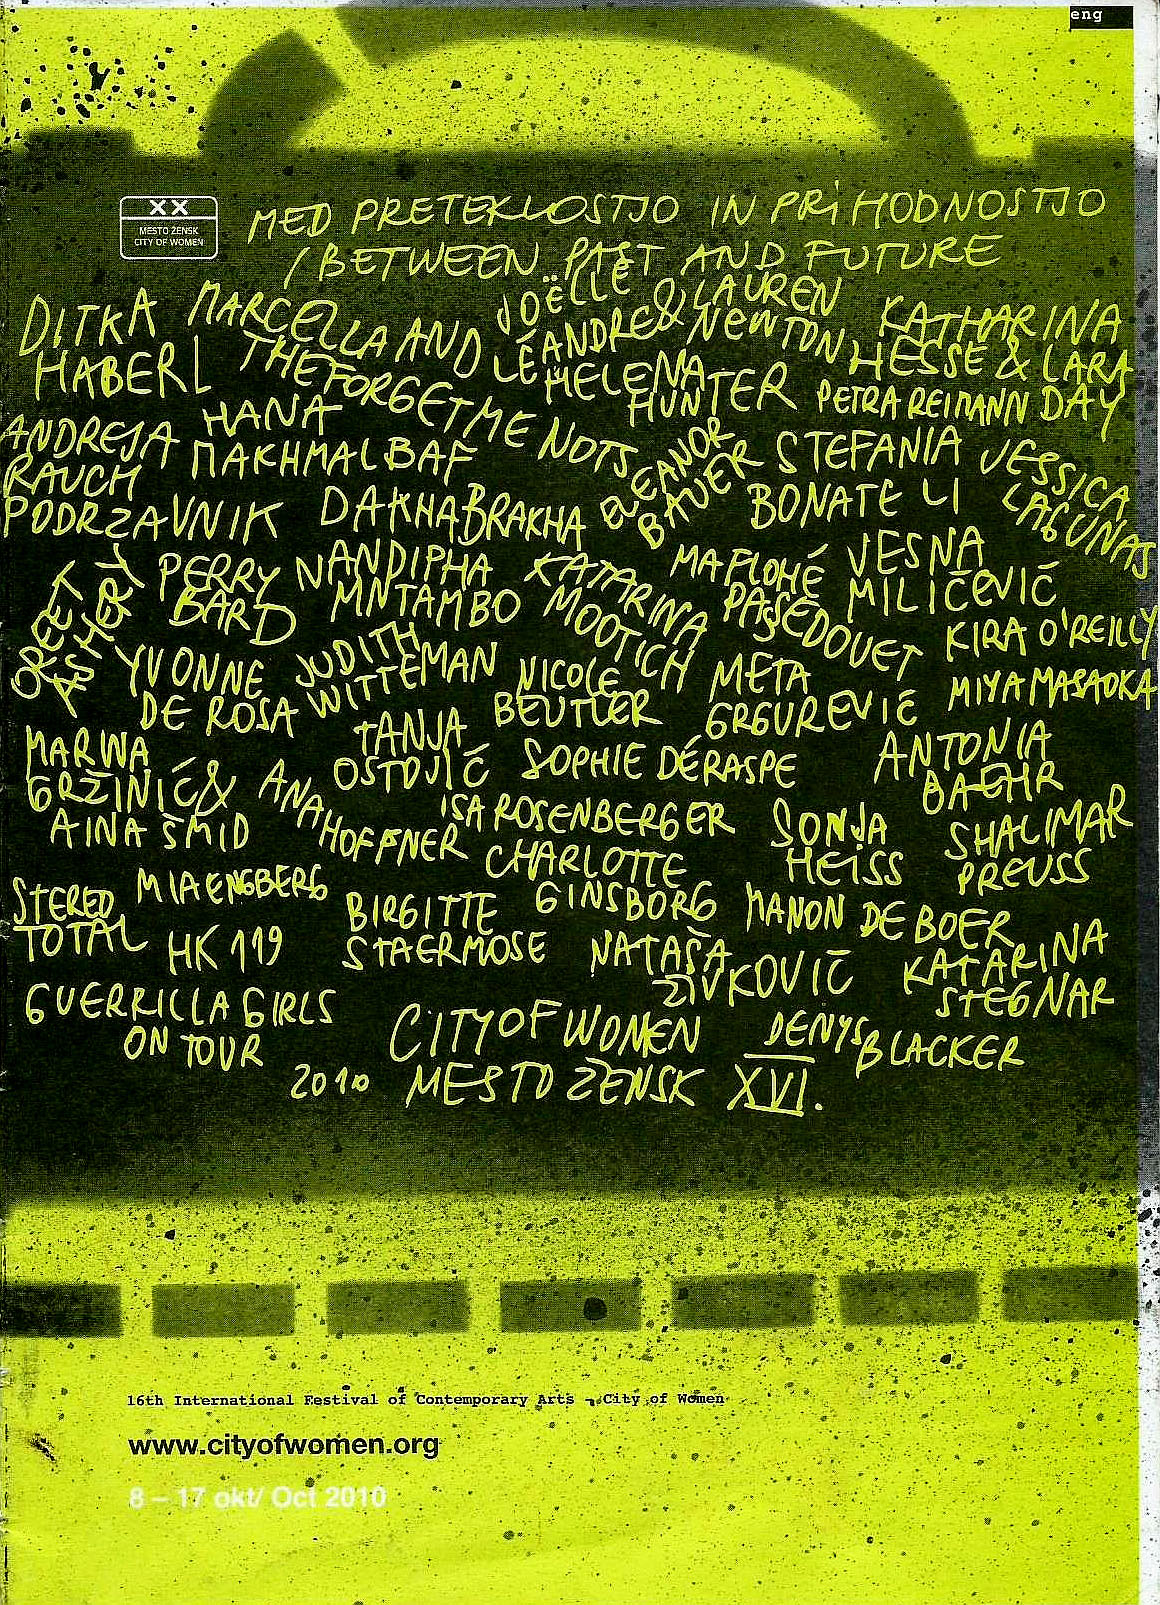 eng
XX
MESTO ŽENSK
CITY OF WOMEN
MED PRETEKLOSTJO IN PRIHODNOSTJO
/ BETWEEN PAST AND FUTURE
DITKA HABERL
MARCELLA AND THE FORGET ME NOTS
JOËLLE LÉANDRE & LAUREN NEWTON
KATHARINA HESSE & LARA DAY
HELENA HUNTER
PETRA REIMANN
ANDREJA RAUCH PODRZAVNIK
HANA MAKHMALBAF
ELEANOR BAUER
STEFANIA BONATELLI
JESSICA LAGUNAS
DAKHABRAKHA
OREET ASHERY
PERRY BARD
NANDIPHA MNTAMBO
KATARINA MOOTICH
MA FLOHÉ PASSEDOUET
VESNA MILIČEVIČ
KIRA O'REILLY
YVONNE DE ROSA
JUDITH WITTEMAN
NICOLE BEUTLER
META GRGUREVIČ
MIYA MASAOKA
MARINA GRŽINIĆ & AINA ŠMID
TANJA OSTOJIĆ
SOPHIE DÉRASPE
ANTONIA BAEHR
ANA HOFFNER
ISA ROSENBERGER
SONJA HEISS
SHALIMAR PREUSS
CHARLOTTE GINSBORG
STEREO TOTAL
MIA ENGBERG
BIRGITTE STAERMOSE
MANON DE BOER
HK 119
NATAŠA ŽIVKOVIČ
KATARINA STEGNAR
GUERRILLA GIRLS ON TOUR
CITY OF WOMEN
DENYS BLACKER
2010 MESTO ŽENSK XVI.
16th International Festival of Contemporary Arts - City of Women
www.cityofwomen.org
8 – 17 okt/ Oct 2010